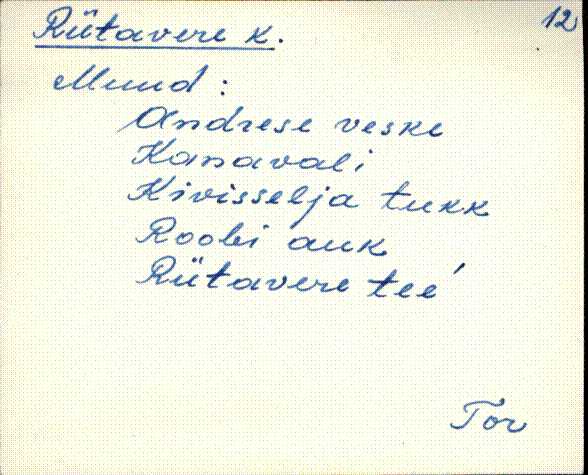 Rütavere k.
12
Muud:
Andrese veske
Kanavali
Kivisselja tukk
Roobi auk
Rütavere tee'
Tor